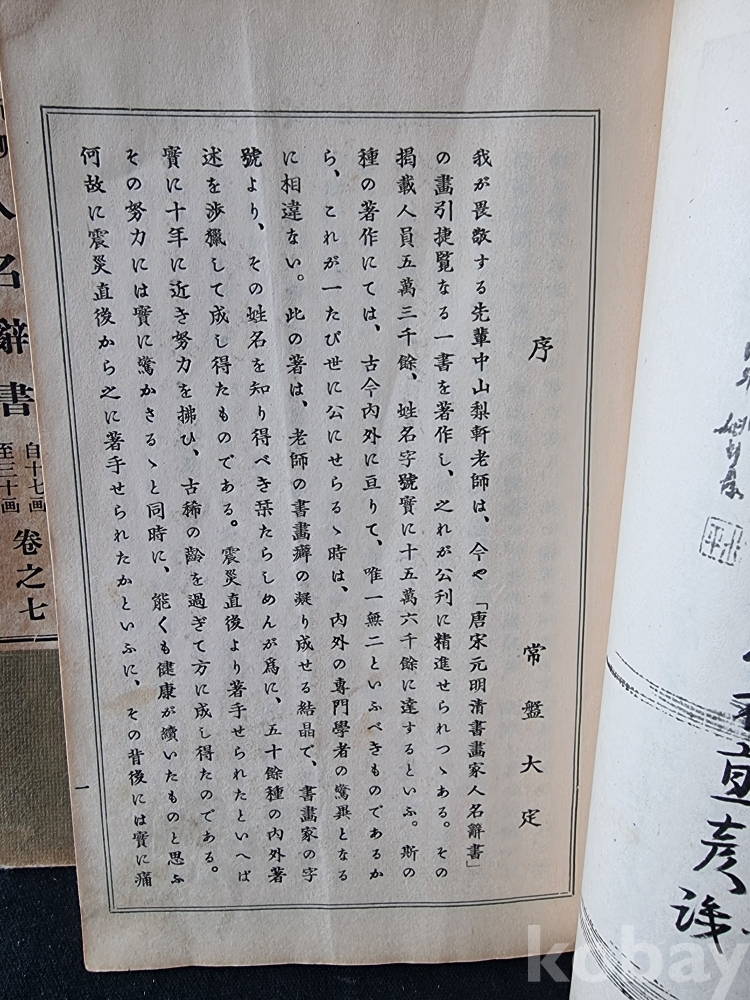 序
常盤大定
我が畏敬する先輩中山梨軒老師は、今や「唐宋元明清書畫家人名辭書」
の畫引捷覧なる一書を著作し、之れが公刊に精進せられつゝある。その
揭載人員五萬三千餘、姓名字號實に十五萬六千餘に達するといふ。斯の
種の著作にては、古今內外に亘りて、唯一無二といふべきものであるか
ら、これが一たび世に公にせらるゝ時は、內外の專門學者の驚異となる
に相違ない。此の著は、老師の書畫癖の凝り成せる結晶で、書畫家の字
號より、その姓名を知り得べき栞たらしめんが爲に、五十餘種の內外著
述を涉獵して成し得たものである。震災直後より著手せられたといへば
實に十年に近き努力を拂ひ、古稀の齡を過ぎて方に成し得たのである。
その努力には實に驚かさるゝと同時に、能くも健康が續いたものと思ふ
何故に震災直後から之に著手せられたかといふに、その背後には實に痛
一
人名辭書
自十七画
至三十画
卷之七
kobay